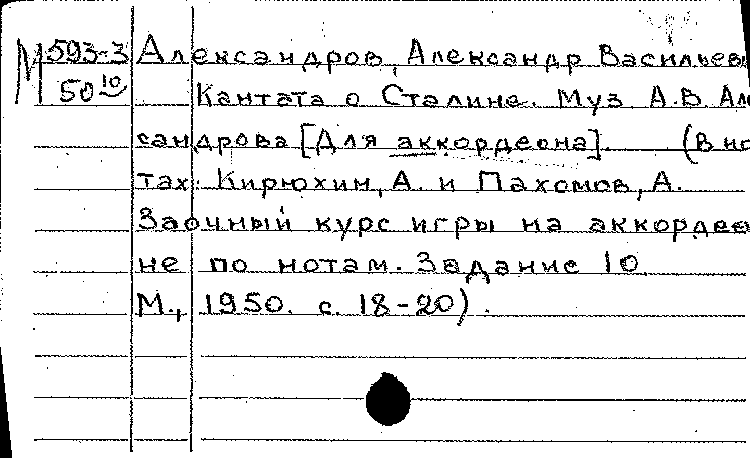 М 593-3 Александров, Александр Васильев
50 10 Кантата о Сталине. Муз А.В. Але
сандрова [Для аккордеона]. (В но
тах: Кирюхин, А. и Пахомов, А.
Заочный курс игры на аккордео
не по нотам. Задание 10.
М., 1950. с. 18-20).